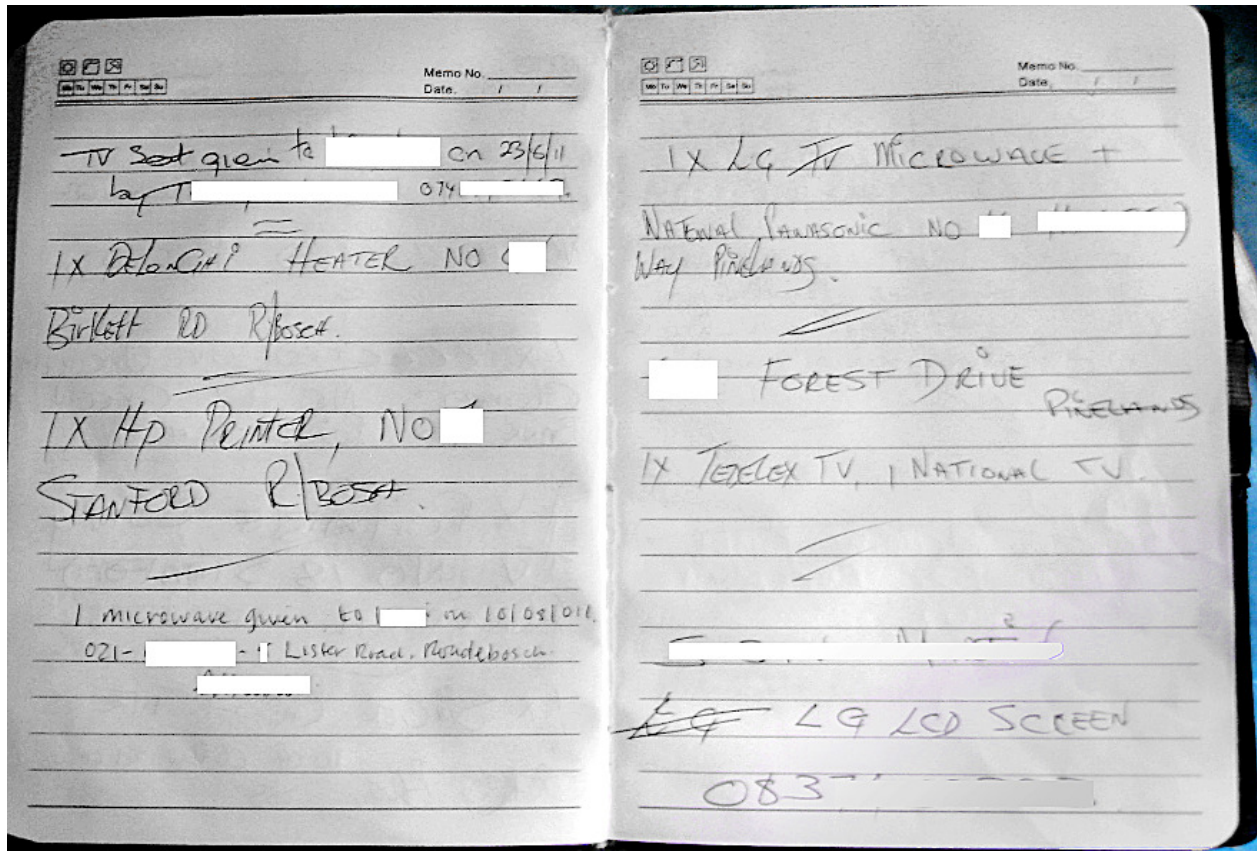 Memo No.
Mo Tu We Th Fr Sa Su
Date. / /
TV Set given to on 23/6/11
by T 074
1X DELONGHI HEATER NO
Birkett RD R/BOSCH.
1X Hp PRINTER, NO
STANFORD R/BOSCH.
1 microwave given to on 10/08/011.
021- - Lister Road. Rondebosch.
Memo No.
Mo Tu We Th Fr Sa Su
Date. / /
1X LG TV MICROWAVE +
NATIONAL PANASONIC NO )
WAY PINELANDS.
FOREST DRIVE
PINELANDS
1X TEDELEX TV, 1 NATIONAL TV.
LG LG LCD SCREEN
083